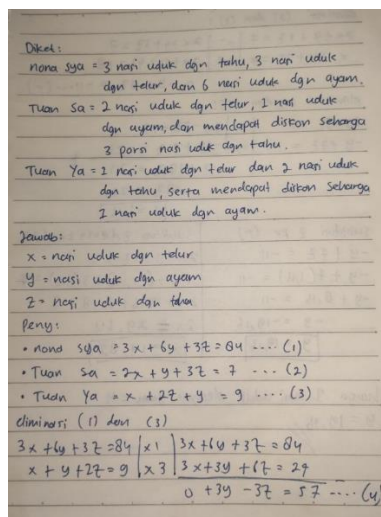 Diket:
nona sya = 3 nasi uduk dgn tahu, 3 nasi uduk
dgn telur, dan 6 nasi uduk dgn ayam.
Tuan Sa = 2 nasi uduk dgn telur, 1 nasi uduk
dgn ayam, dan mendapat diskon seharga
3 porsi nasi uduk dgn tahu.
Tuan Ya = 1 nasi uduk dgn telur dan 2 nasi uduk
dgn tahu, serta mendapat diskon seharga
1 nasi uduk dgn ayam.
Jawab:
x = nasi uduk dgn telur
y = nasi uduk dgn ayam
z = nasi uduk dgn tahu
Peny:
• nona sya = 3x + 6y + 3z = 84 .... (1)
• Tuan Sa = 2x + y + 3z = 7 ... (2)
• Tuan Ya = x + 2z + y = 9 .... (3)
eliminasi (1) dan (3)
3x + 6y + 3z = 84 | x 1 | 3x + 6y + 3z = 84
x + y + 2z = 9 | x 3 | 3x + 3y + 6z = 27
0 + 3y - 3z = 57 .... (4)